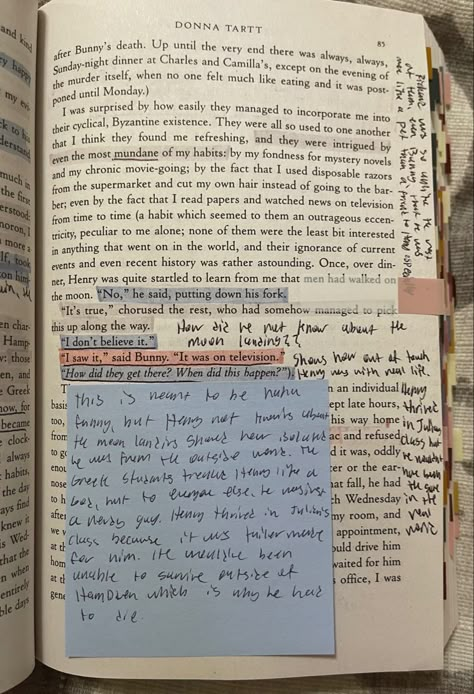 DONNA TARTT
85
after Bunny's death. Up until the very end there was always, always,
Sunday-night dinner at Charles and Camilla's, except on the evening of
the murder itself, when no one felt much like eating and it was post-
poned until Monday.)
I was surprised by how easily they managed to incorporate me into
their cyclical, Byzantine existence. They were all so used to one another
that I think they found me refreshing, and they were intrigued by
even the most mundane of my habits: by my fondness for mystery novels
and my chronic movie-going; by the fact that I used disposable razors
from the supermarket and cut my own hair instead of going to the bar-
ber; even by the fact that I read papers and watched news on television
from time to time (a habit which seemed to them an outrageous eccen-
tricity, peculiar to me alone; none of them were the least bit interested
in anything that went on in the world, and their ignorance of current
events and even recent history was rather astounding. Once, over din-
ner, Henry was quite startled to learn from me that men had walked on
the moon. "No," he said, putting down his fork.
"It's true," chorused the rest, who had somehow managed to pick
this up along the way.
How did he not know about the
moon landing??
"I don't believe it."
"I saw it," said Bunny. "It was on television."
"How did they get there? When did this happen?")
Shows how out of touch
Henry was with real life.
Henry
thrived
in Julian's
class but
he wouldn't
have been
the same
in the
real
world
This is meant to be haha
funny, but Henry not knowing about
the moon landing shows how isolated
he was from the outside world. The
Greek students treated Henry like a
God, but to everyone else, he was just
a nerdy guy. Henry thrived in Julian's
class because it was tailor made
for him. He would've been
unable to survive outside of
Hampden which is why he had
to die.
an individual
ept late hours,
his way home
ac and refused
d it was, oddly
er or the ear-
that fall, he had
h Wednesday
my room, and
appointment,
ould drive him
waited for him
s office, I was